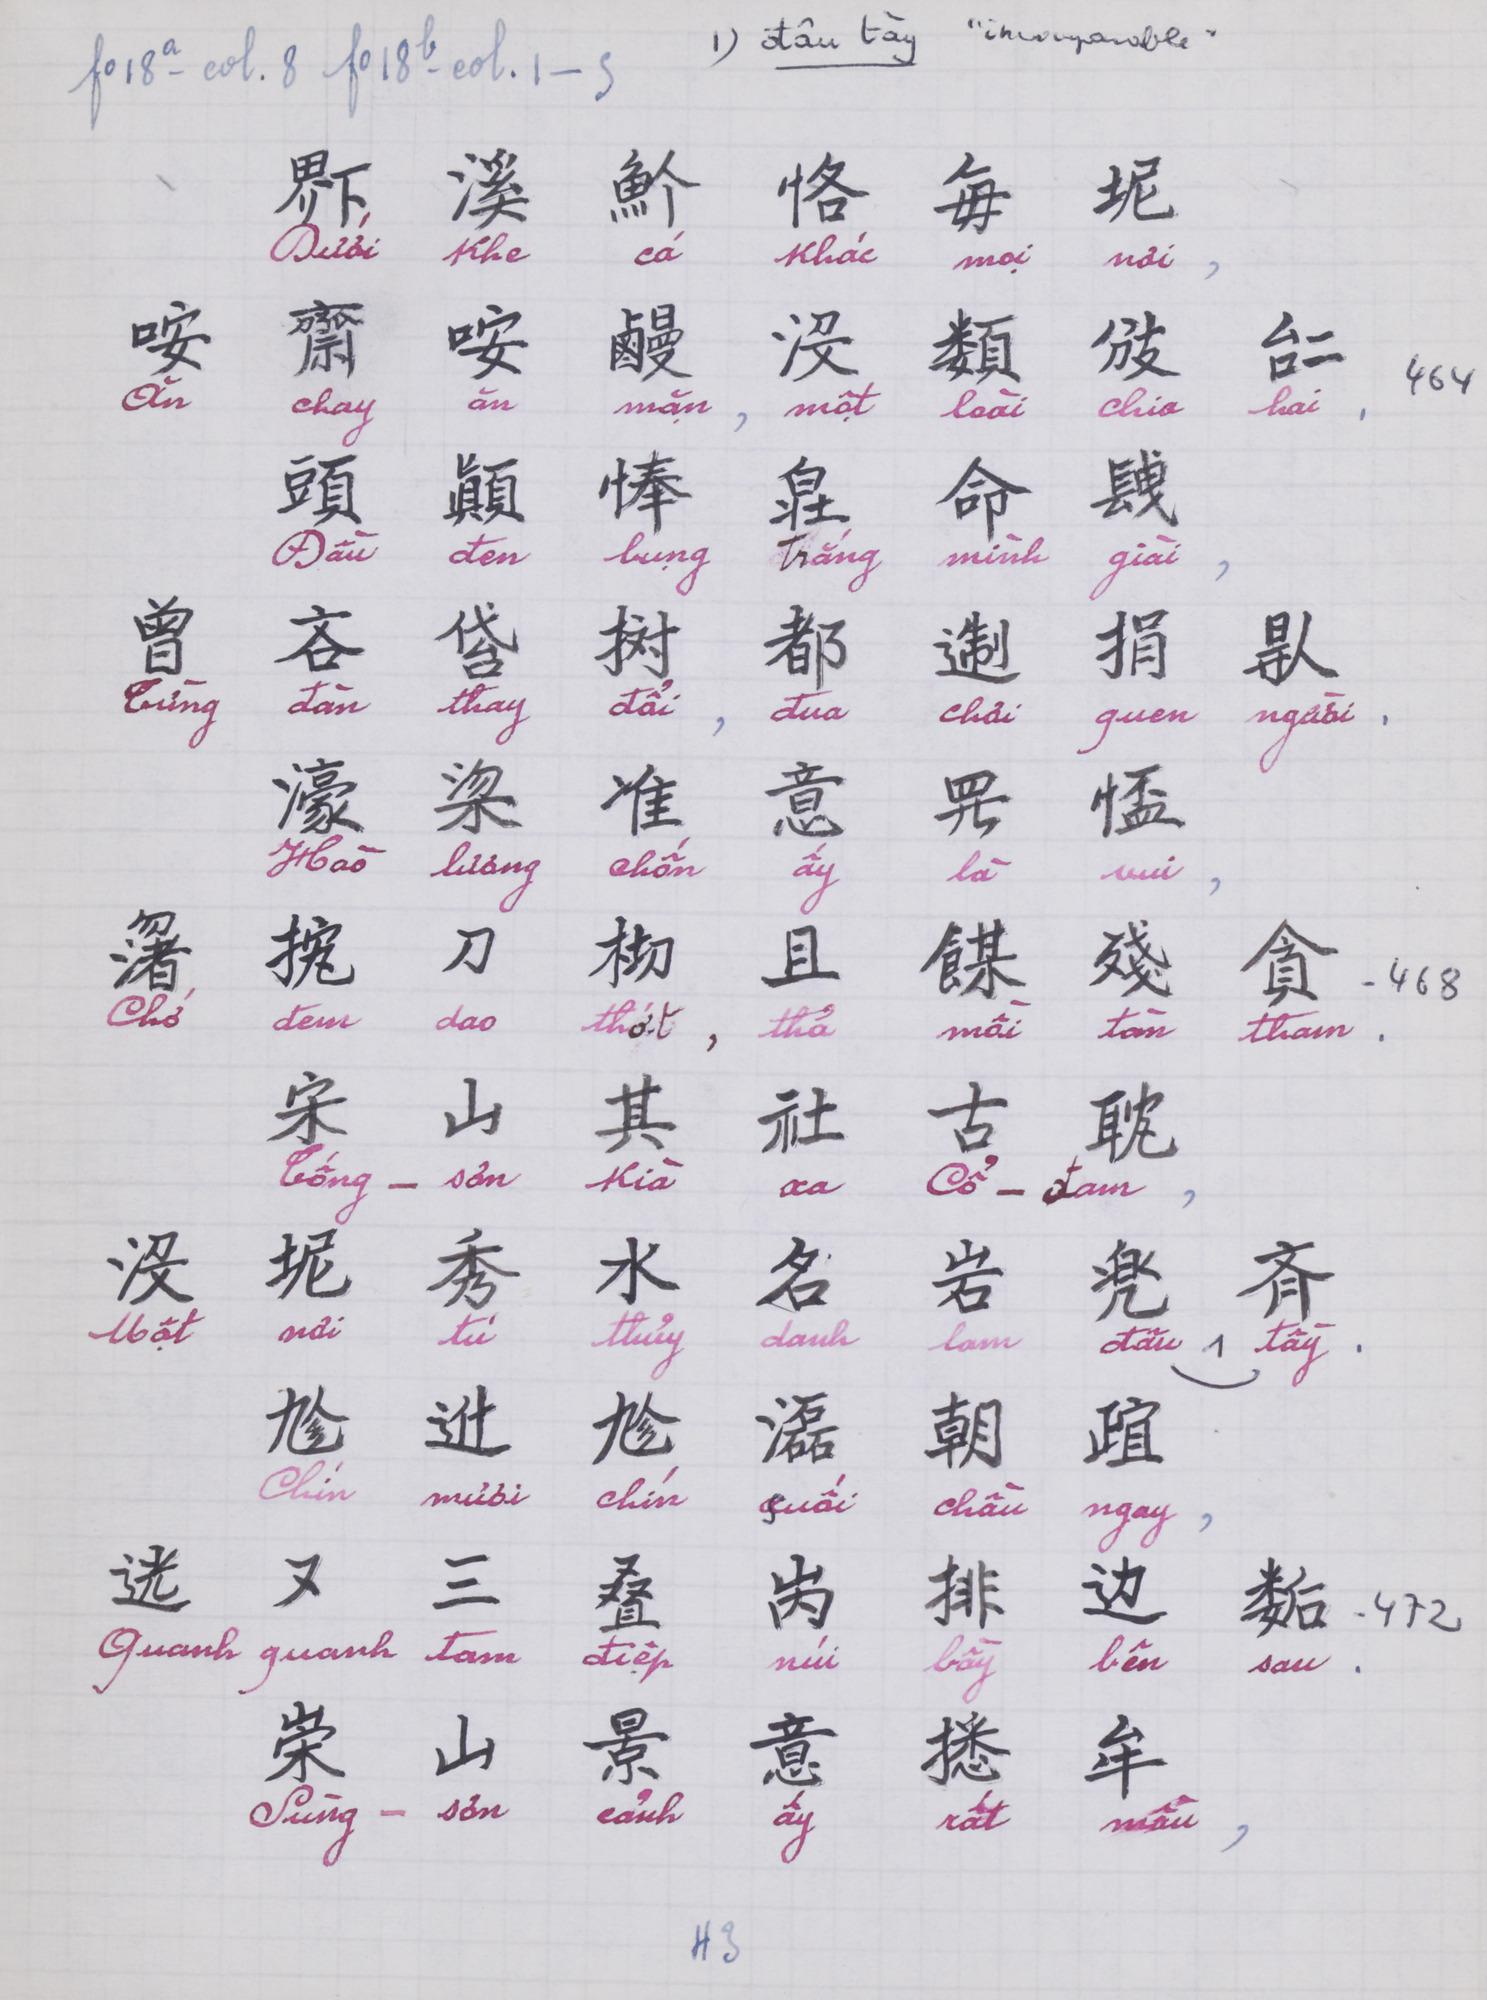 fº 18ª - col. 8 fº 18ᵇ - col. 1 – 5
1) đâu tày "incomparable"
𠁑 溪 𩵜 恪 每 坭
Dưới khe cá khác mọi nơi,
咹 齋 咹 𪉽 没 類 𢺺 𠄩 464
Ăn chay ăn mặn, một loài chia hai.
頭 顛 㤓 𤽸 命
Đầu đen bụng trắng mình giài,
曾 吝 㑷 𢬭 都 𨔾 捐 𠊚
Từng đàn thay đổi, đua chơi quen người.
濠 梁 准 意 𱺵 𢝙
Hào lương chốn ấy là vui,
𣄒 㧅 刀 㭾 且 𩛸 殘 貪 - 468
Chớ đem dao thớt, thả mồi tàn tham.
宋 山 其 社 古 耽
Tống - sơn kià xa Cổ - đam,
没 坭 秀 水 名 岩 兠 齐
Một nơi tú thủy danh lam đâu 1 tầy.
𠃩 𨑮 𠃩 𤂬 朝 𣦍
Chín mươi chín suối chầu ngay,
𨒺 又 三 叠 𡶀 排 边 𢖖 - 472
Quanh quanh tam điệp núi bầy bên sau.
崇 山 景 意 𢴑 牟
Sùng - sơn cảnh ấy rất mầu,
43